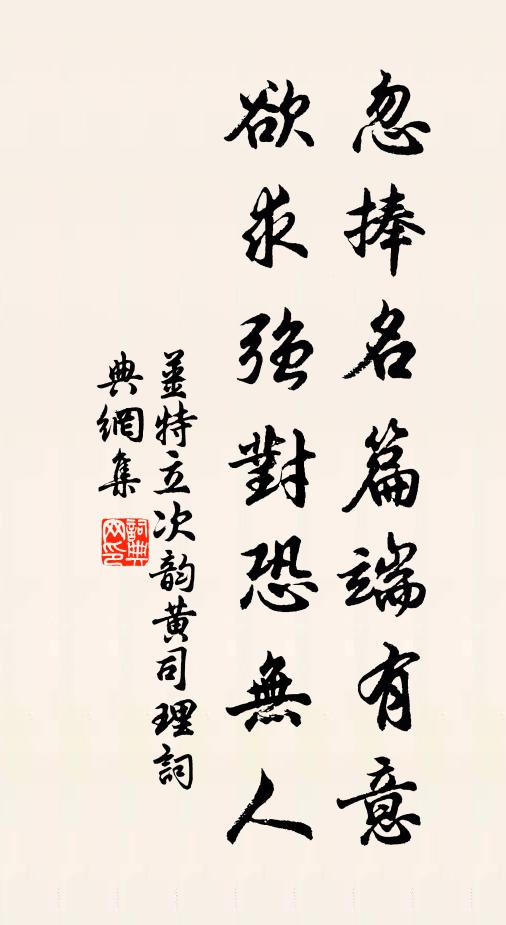 忽捧名篇端有意
欲求強對恐無人
姜特立次韵黃司理詞
典網集
詞典
网印